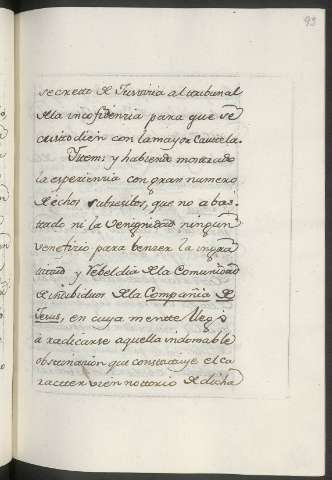 93
secreto de Justicia al tribunal
de la inconfidencia para que se
custodien con la mayor Cautela.
Item: y habiendo mostrado
la esperiencia con gran numero
de echos subversibos, que no a bas-
tado ni la venignidad ningun
veneficio para benzer la ingra
titud y rebeldia de la Comunidad
de individuos de la Compañia de
Jesus, en cuya mente llegó
à radicarse aquella indomable
obstinacion que constituye el ca
racter vien notorio de dicha